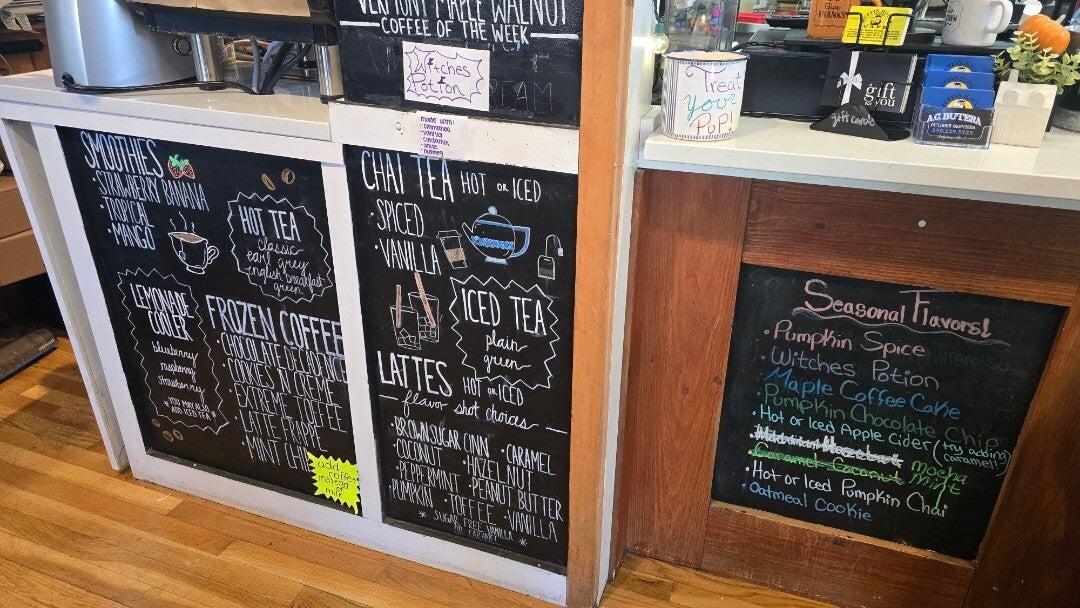 VERMONT MAPLE WALNUT
COFFEE OF THE WEEK
Witches
Potion
made with:
SMOOTHIES
• STRAWBERRY BANANA
• TROPICAL
• MANGO
HOT TEA
classic
earl grey
english breakfast
green
LEMONADE
COOLER
blueberry
raspberry
strawberry
*YOU MAY ALSO
ADD ICED TEA*
FROZEN COFFEE
• CHOCOLATE DECADENCE
• COOKIES 'N CREME
• EXTREME TOFFEE
• LATTE FRAPPE
• MINT CHIP
add
coffee
instead of
milk
CHAI TEA HOT OR ICED
• SPICED
• VANILLA
ICED TEA
plain
green
LATTES HOT OR ICED
flavor shot choices
• BROWN SUGAR CINN • CARAMEL
• COCONUT • HAZELNUT
• PEPPERMINT • PEANUT BUTTER
• PUMPKIN • TOFFEE • VANILLA
* SUGAR FREE VANILLA *
Treat
your
Pup!
gift
you
gift cards
A.C. BUTERA
Seasonal Flavors!
• Pumpkin Spice
• Witches Potion
• Maple Coffee Cake
• Pumpkin Chocolate Chip
• Hot or Iced Apple Cider (try adding
caramel!)
• Caramel Coconut mocha
mint
• Hot or Iced Pumpkin Chai
• Oatmeal Cookie